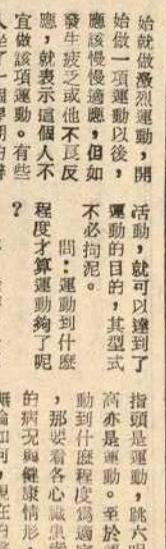 始就做激烈運動，開
始做一項運動以後，
應該慢慢適應，但如
發生疲乏或他不良反
應，就表示這個人不
宜做該項運動。有些
活動，就可以達到了
運動的目的，其型式
不必拘泥。
問：運動到什麼
程度才算運動夠了呢
？
指頭是運動，跳六呎
高亦是運動。至於運
動到什麼程度爲適
，那要看各心臟患
的病況與健康情形，